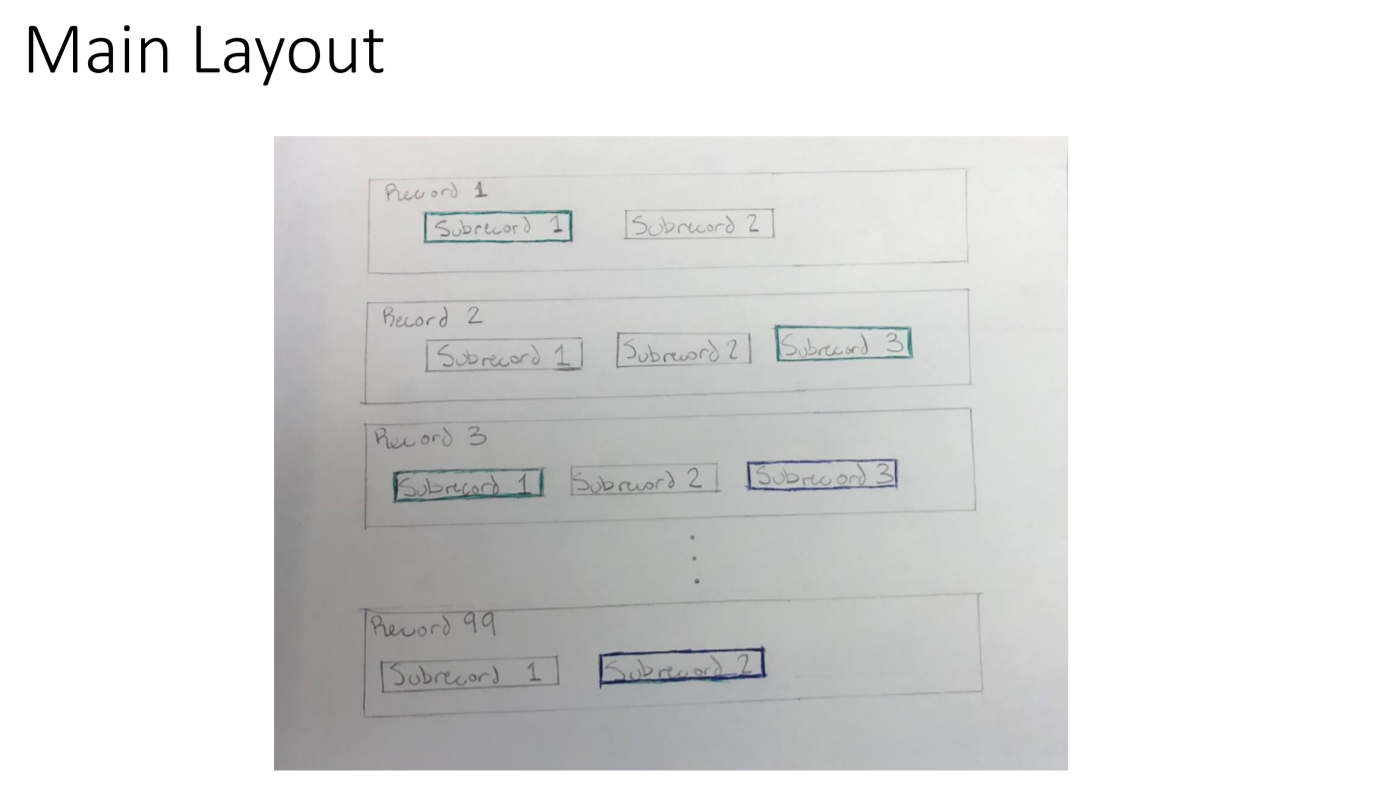 Main Layout
Record 1
Subrecord 1 Subrecord 2
Record 2
Subrecord 1 Subrecord 2 Subrecord 3
Record 3
Subrecord 1 Subrecord 2 Subrecord 3
Record 99
Subrecord 1 Subrecord 2